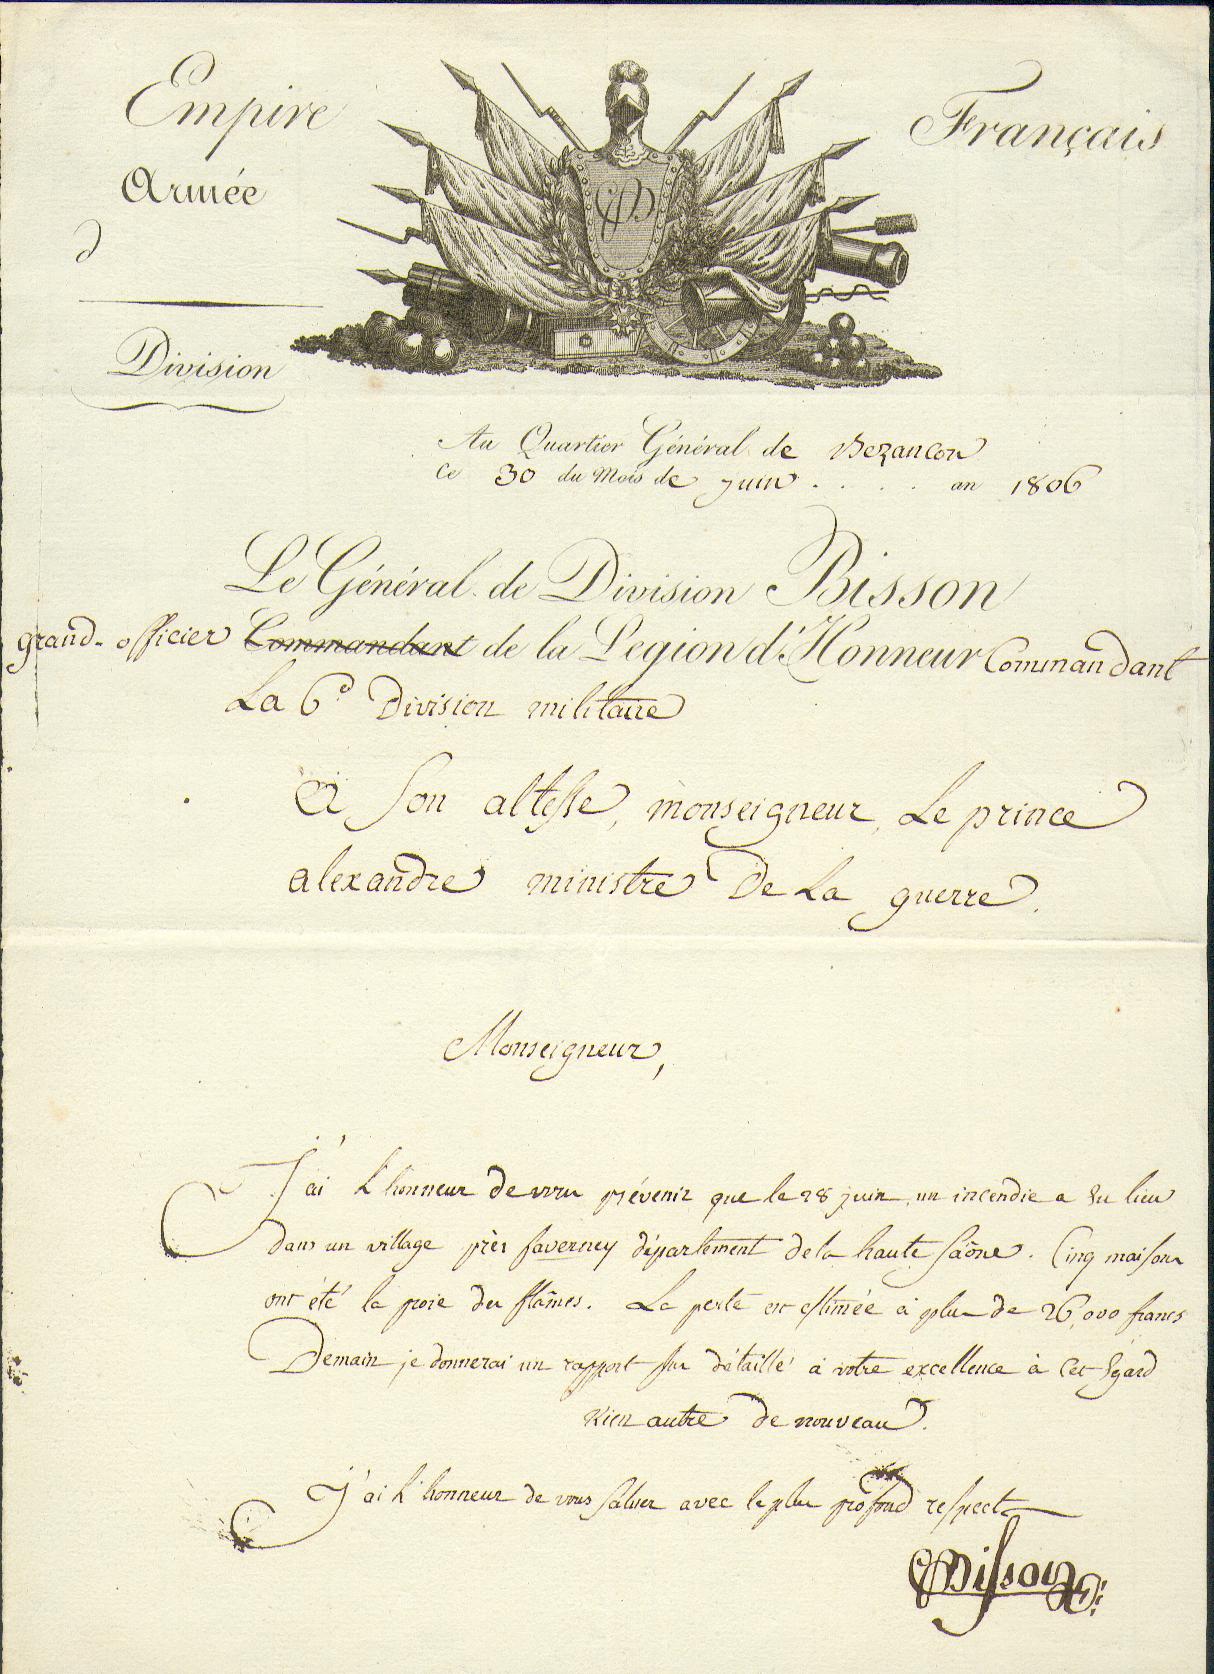 Empire Français
Armée
d
Division
Au Quartier Général de Bezancon
Ce 30 du Mois de juin . . . . an 1806
Le Général de Division Bisson
grand-officier Commandant de la Legion d'Honneur Commandant
La 6e Division militaire
A Son altesse, monseigneur, Le prince
alexandre ministre De La guerre.
Monseigneur,
J'ai l'honneur de vous prévenir que le 28 juin, un incendie a Eu lieu
dans un village près faverney département de la haute Saône. Cinq maisons
ont été la proie des flâmes. La perte est estimée à plus de 26,000 francs
Demain je donnerai un rapport plus détaillé à votre excellence à Cet Egard
Rien autre de nouveau.
J'ai l'honneur de vous saluer avec le plus profond respect
Bisson